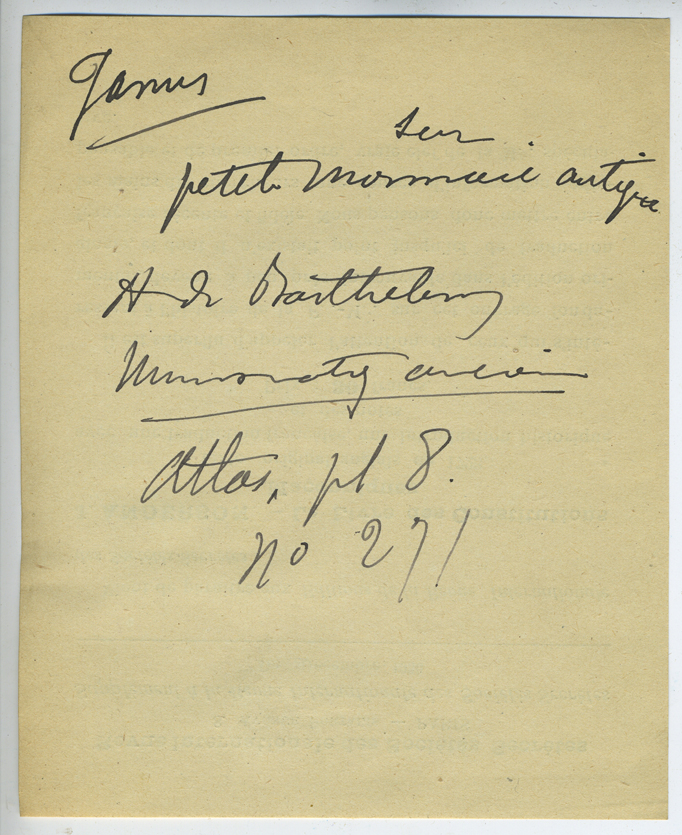 Janus
sur
petite monnaie antique
A de Barthelemy
Numismatiq ancienne
Atlas, pl 8.
no 271